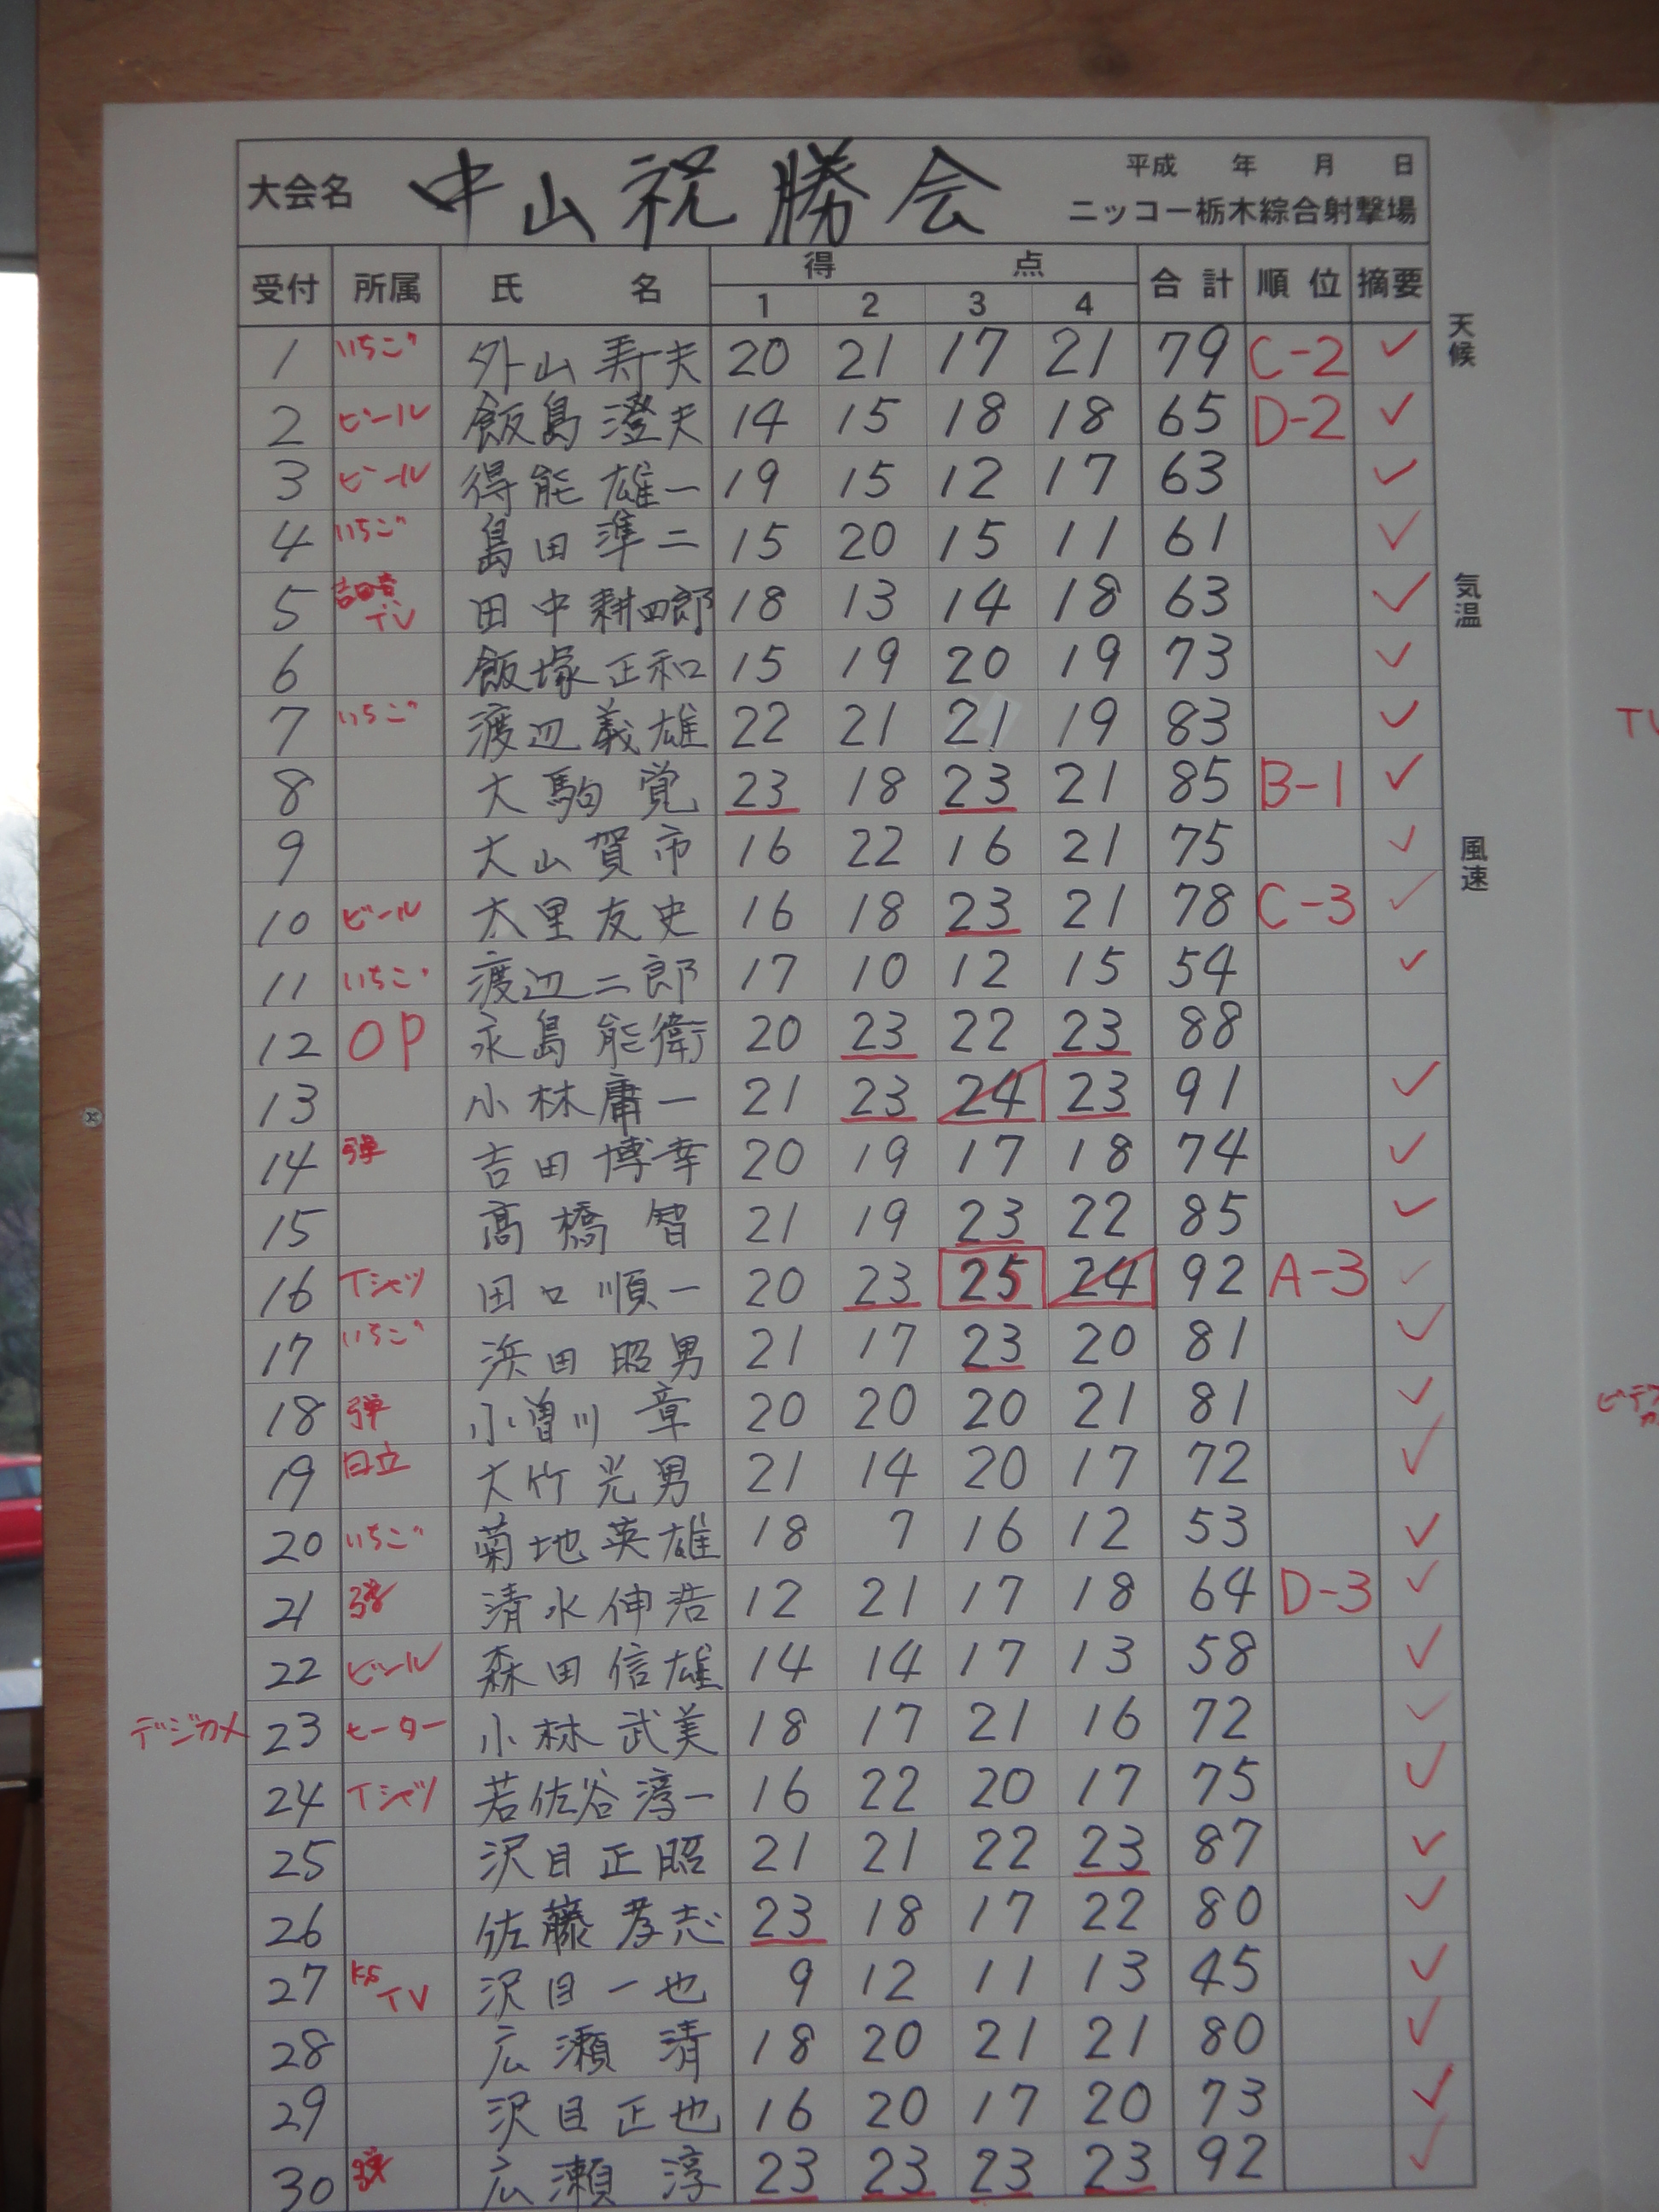 大会名 中山祝勝会 平成 年 月 日
ニッコー栃木綜合射撃場
受付 所属 氏名 得点 合計 順位 摘要
1 2 3 4
天候
気温
風速
1 いちご 外山寿夫 20 21 17 21 79 C-2 ✓
2 ビール 飯島澄夫 14 15 18 18 65 D-2 ✓
3 ビール 得能雄一 19 15 12 17 63 ✓
4 いちご 島田準二 15 20 15 11 61 ✓
5 TV 田中耕四郎 18 13 14 18 63 ✓
6 飯塚正和 15 19 20 19 73 ✓
7 いちご 渡辺義雄 22 21 21 19 83 ✓
8 大駒覚 23 18 23 21 85 B-1 ✓
9 大山賀市 16 22 16 21 75 ✓
10 ビール 大里友史 16 18 23 21 78 C-3 ✓
11 いちご 渡辺二郎 17 10 12 15 54 ✓
12 OP 永島能衛 20 23 22 23 88
13 小林庸一 21 23 24 23 91 ✓
14 弾 吉田博幸 20 19 17 18 74 ✓
15 髙橋智 21 19 23 22 85 ✓
16 Tシャツ 田口順一 20 23 25 24 92 A-3 ✓
17 いちご 浜田昭男 21 17 23 20 81 ✓
18 弾 小曽川章 20 20 20 21 81 ✓
19 日立 大竹光男 21 14 20 17 72 ✓
20 いちご 菊地英雄 18 7 16 12 53 ✓
21 清水伸浩 12 21 17 18 64 D-3 ✓
22 ビール 森田信雄 14 14 17 13 58 ✓
デジカメ 23 ヒーター 小林武美 18 17 21 16 72 ✓
24 Tシャツ 若佐谷淳一 16 22 20 17 75 ✓
25 沢目正昭 21 21 22 23 87 ✓
26 佐藤孝志 23 18 17 22 80 ✓
27 TV 沢目一也 9 12 11 13 45 ✓
28 広瀬清 18 20 21 21 80 ✓
29 沢目正也 16 20 17 20 73 ✓
30 広瀬淳 23 23 23 23 92 ✓